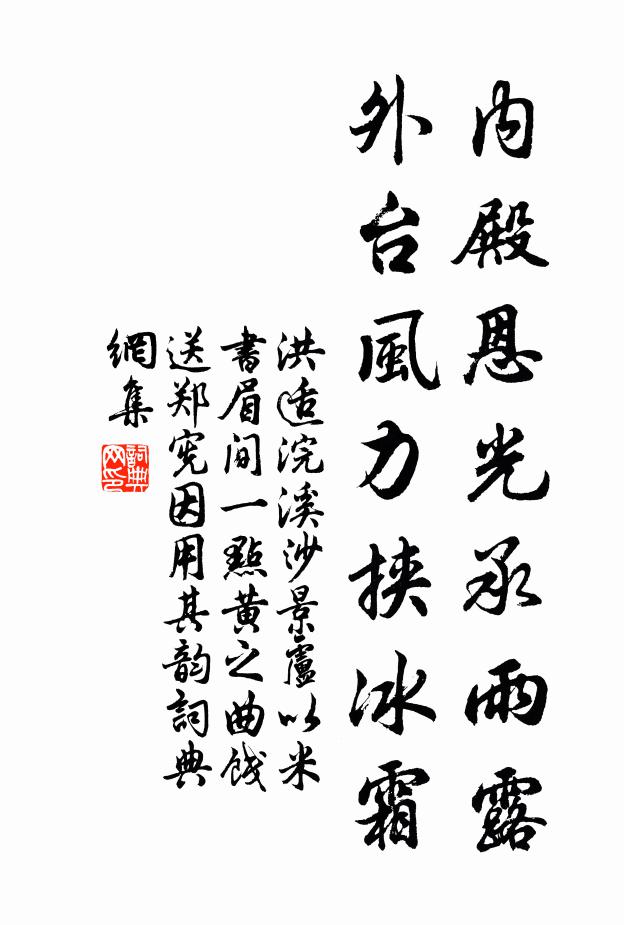 内殿恩光承雨露
外台風力挟冰霜
洪适浣溪沙景廬以米
書眉间一點黄之曲餞
送郑宪因用其韵詞典
網集
詞典
网印